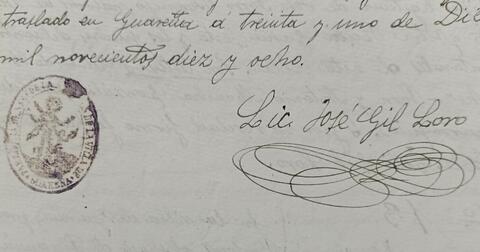 traslado en Guareña á treinta y uno de Dic
mil novecientos diez y ocho.
Lic. José Gil Loro